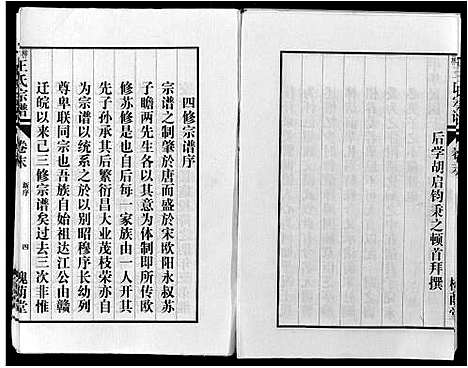 后学胡启钧秉之顿首拜撰
四修宗谱序
宗谱之制肇于唐而盛于宋欧阳永叔苏
子瞻两先生各以其意为体制即所传欧
修苏修是也自后每一家族由一人开其
先子孙承其后繁衍昌大业茂枝荣亦自
为宗谱以统系之于以别昭穆序长幼列
尊卑联同宗也吾族自始祖达江公由赣
迁皖以来已三修宗谱矣过去三次非惟
王氏宗谱
卷末
新序
四
槐荫堂